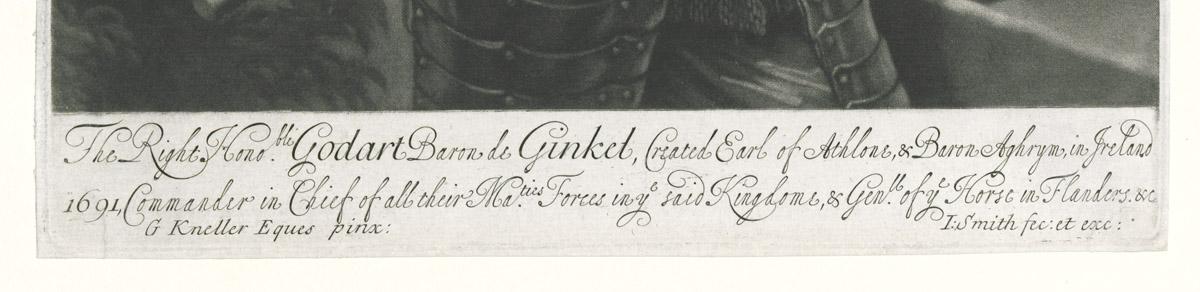 The Right Hono.ble Godart Baron de Ginkel, Created Earl of Athlone, & Baron Aghrym, in Ireland
1691, Commander in Chief of all their Ma.ties Forces in ye said Kingdome, & Gen.ll of ye Horse in Flanders. &c
G Kneller Eques pinx: I: Smith fec: et exc: